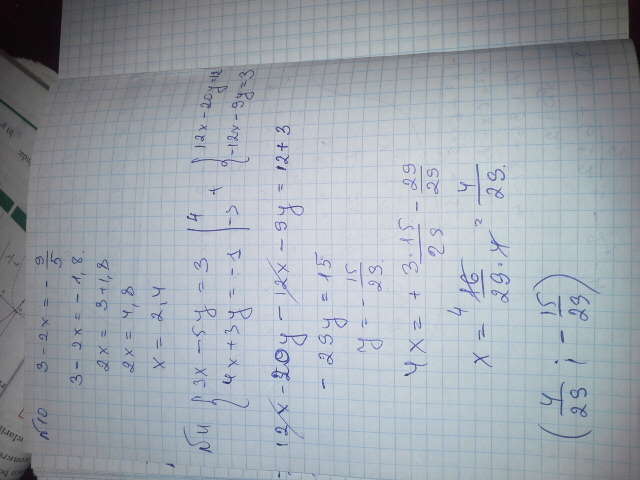 №10 3 - 2x = - 9/5
3 - 2x = - 1,8.
2x = 3+1,8
2x = 4,8
x = 2,4
№11 { 3x - 5y = 3 | 4 + { 12x - 20y = 12
4x + 3y = -1 | -3 -12x - 9y = 3
12x - 20y - 12x - 9y = 12 + 3
- 29y = 15
y = - 15/29.
4x = + 3·15/29 - 29/29
x = 4 16/29·4 = 4/29.
( 4/29 ; - 15/29 )